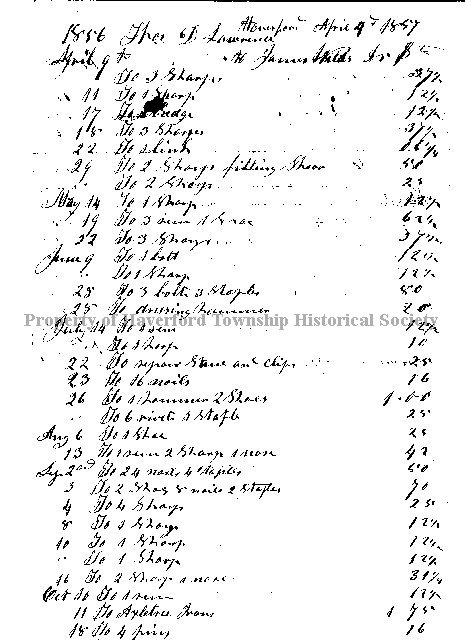 Haverford April 4th 1857
1856 Thos D Lawrence
April 9th To James Dr
To 3 Sharps 37½
11 To 1 Sharp 12½
17 To 12½
18 To 3 Sharps 37½
22 To 1 link 06¼
29 To 2 Sharps fitting Shear 50
" To 2 Sharp 25
May 14 To 1 Sharp 12½
19 To 3 1 62½
22 To 3 Sharps 37½
June 9 To 1 bolt 12½
" To 1 Sharp 12½
25 To 3 bolts 3 Staples 50
25 To dressing hammer 20
Property of Haverford Township Historical Society
July 14 To 1
" To 1 Sharp 10
22 To repair and clips 25
23 To 16 nails 16
26 To 1 hammer 2 Shoes 1.00
" To 6 rivets 1 Staple 25
Aug 6 To 1 Shoe 25
13 To 1 2 Sharp 1 nose 42
Sep 2nd To 24 nails 4 Staples 50
3 To 2 8 nails 2 Staples 70
4 To 4 Sharps 25
8 To 1 Sharp 12½
10 To 1 Sharp 12½
" To 1 Sharp 12½
16 To 2 Sharp 1 nose 31¼
Oct 10 To 1 12½
11 To Axletree Irons 1 75
18 To 4 pins 16